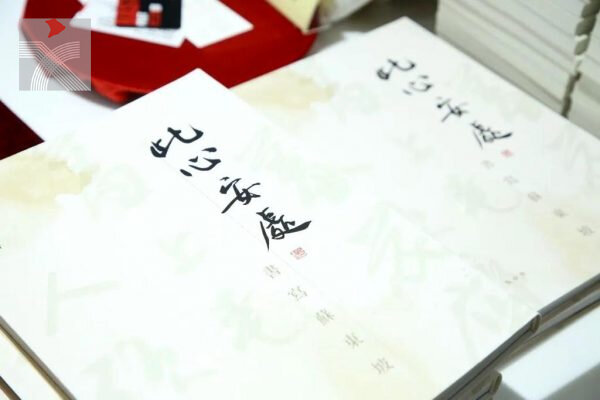 此心安處
書寫蘇東坡
此心安處
書寫蘇東坡